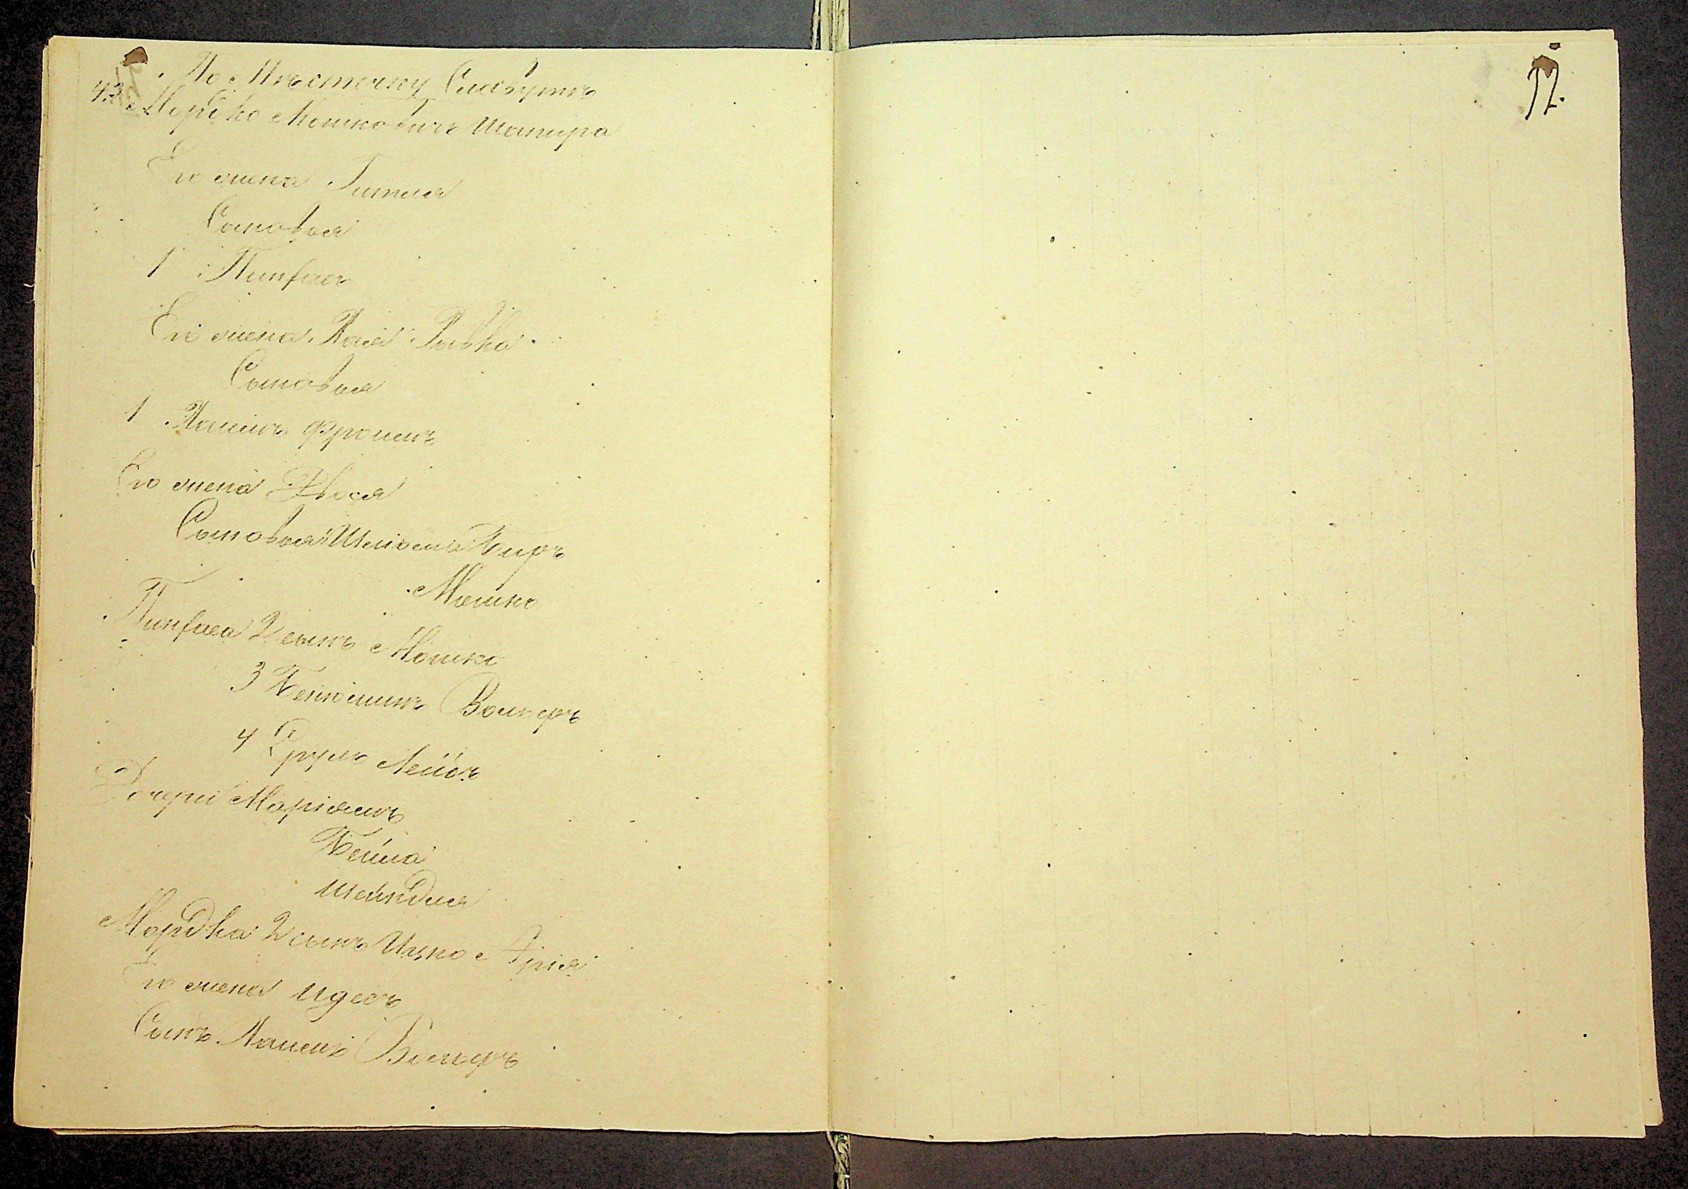 По Мѣстечку Славутѣ
43 Мордко Мошковичъ Шапиро
Его жена Гитля
Сыновья
1 Пинхасъ
Его жена Хая Ривка
Сыновья
1 Хаимъ Фроимъ
Его жена Двося
Сыновья Шліома Беръ
Мошко
Пинхаса 2 сынъ Мошко
3 Беніоминъ Вольфъ
4 Срулъ Лейбъ
Дочери Маріямъ
Бейла
Шейндля
Мордка 2 сынъ Ицко Арія
Его жена Идесъ
Сынъ Хаимъ Вольфъ
12.